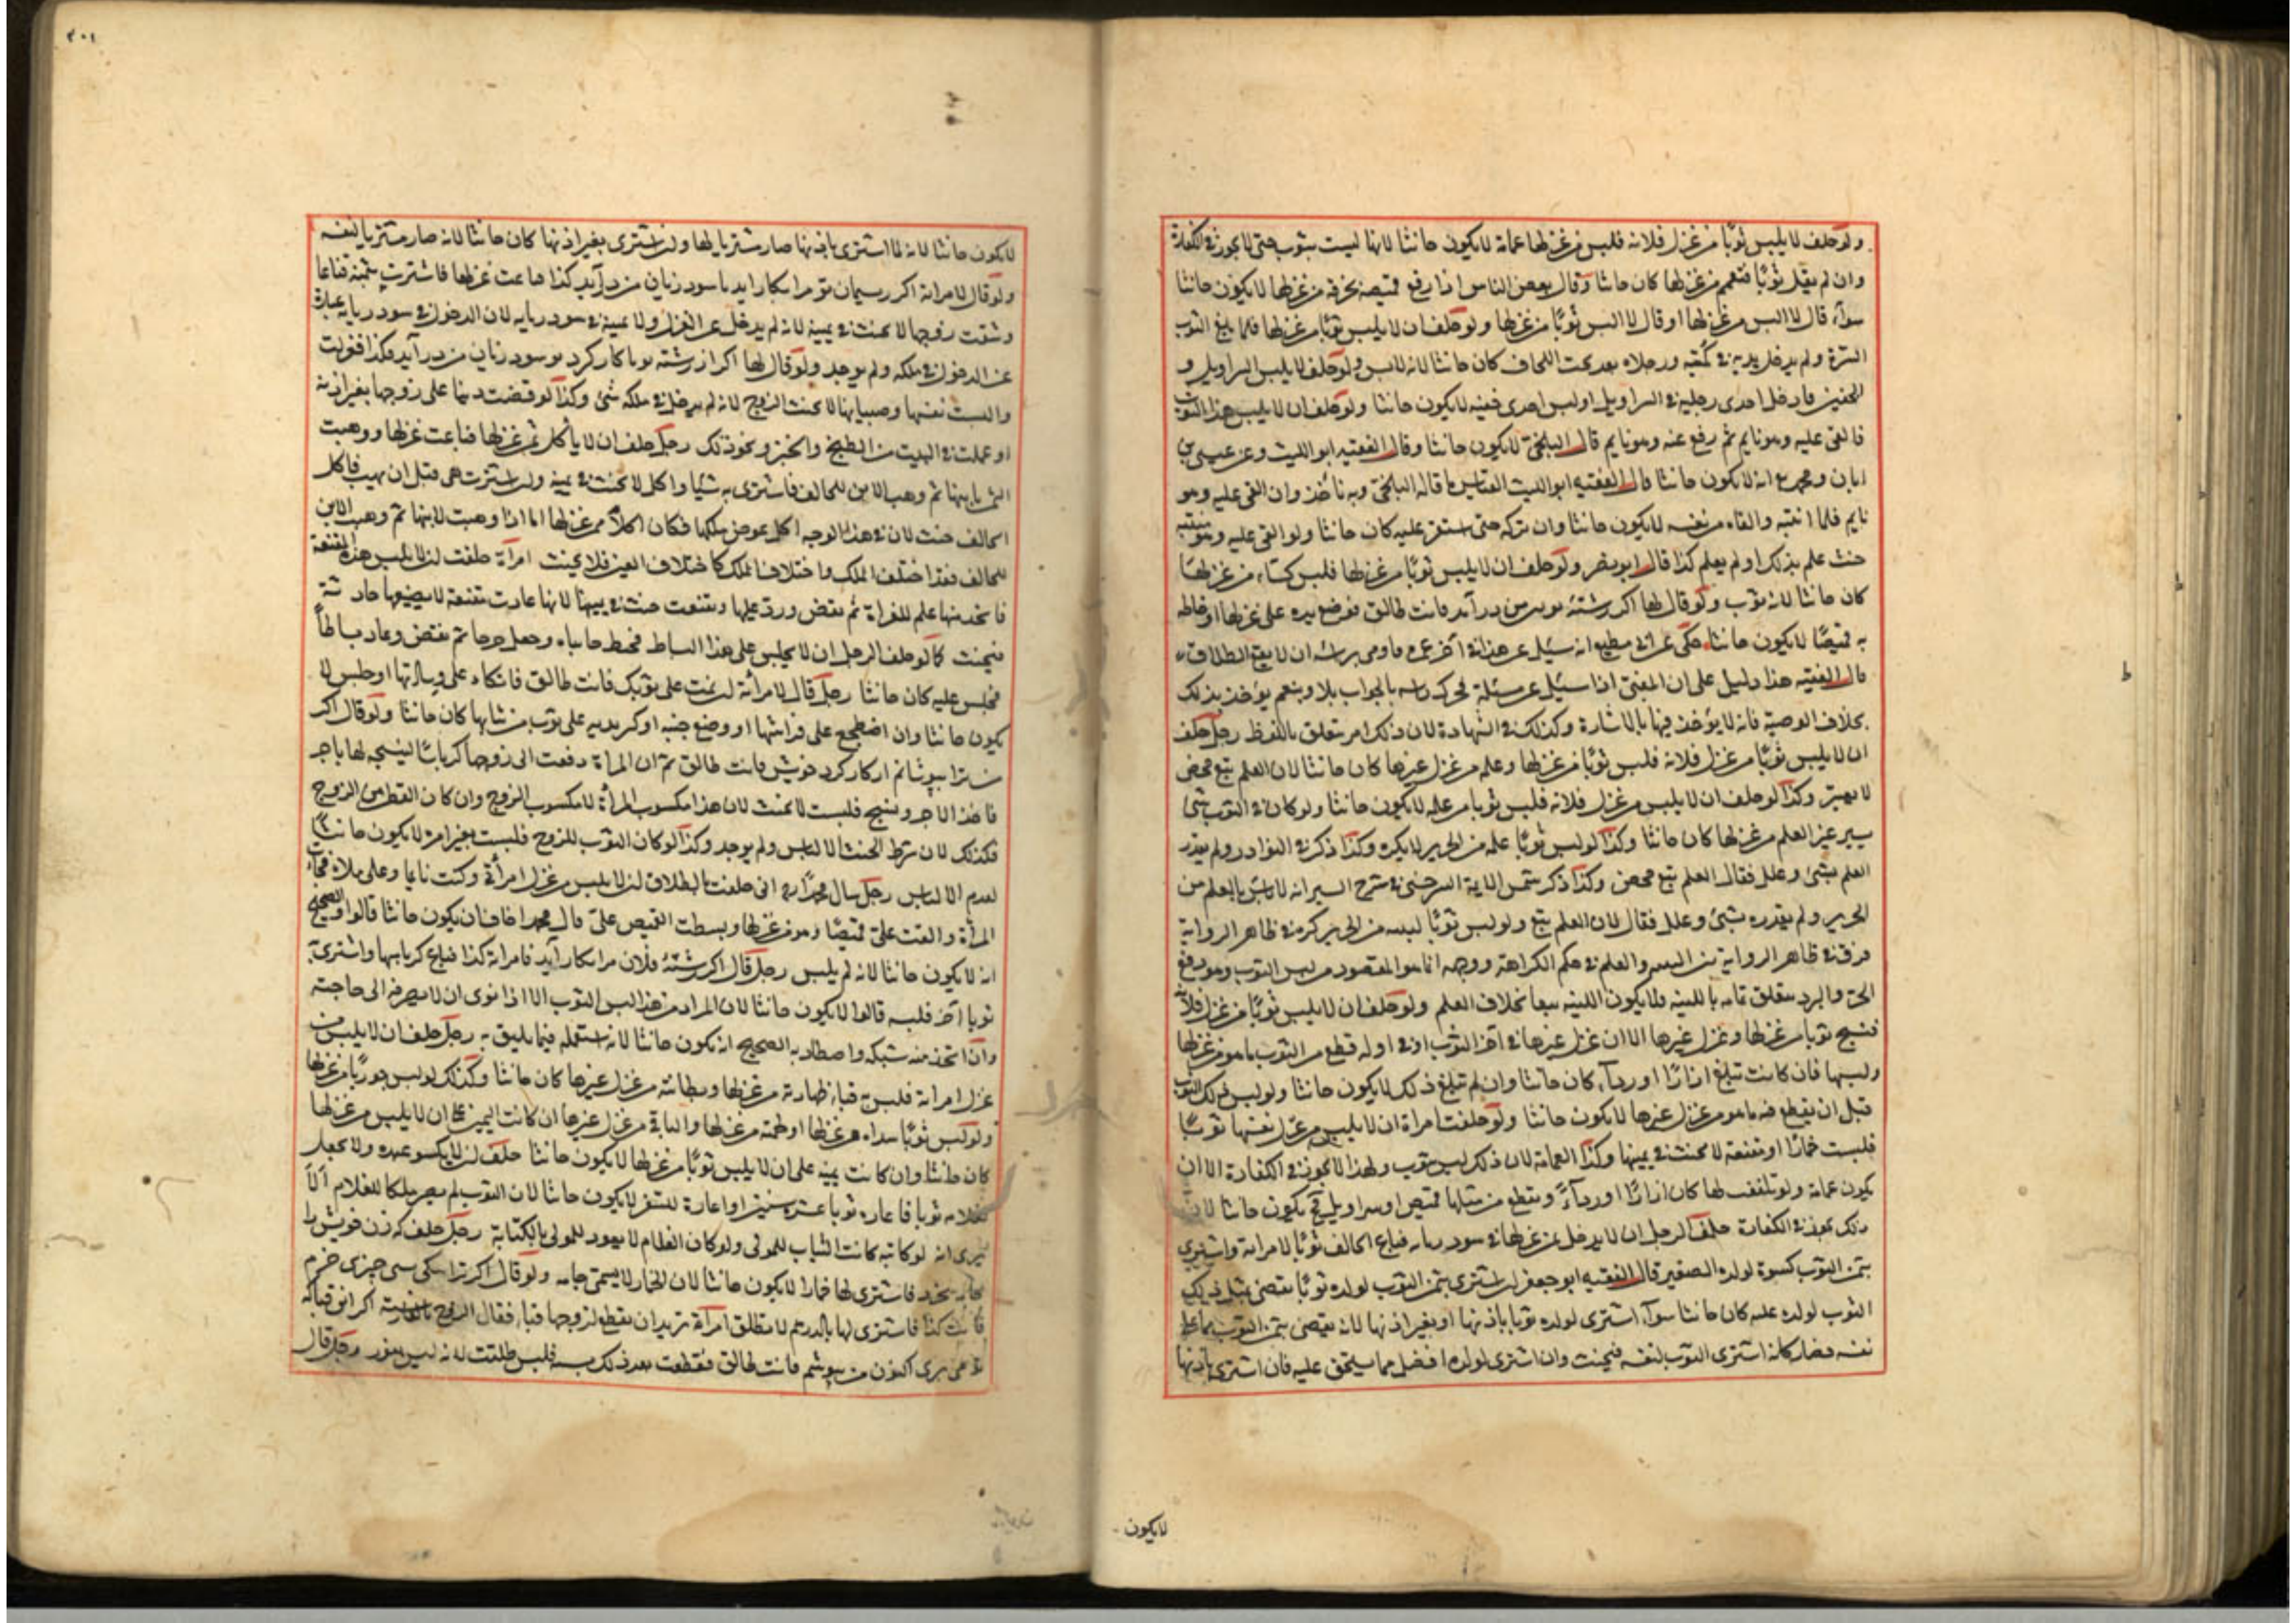 ولو حلف لا يلبس ثوبًا من غزل فلانة فلبس من غزلها عمامة لا يكون حانثا لانها ليست بثوب حتى لا يجوز في الكفارة
وان لم يقل ثوبًا فتعمم من غزلها كان حانثا وقال بعض الناس اذا رقع قميصه بخرقة من غزلها لا يكون حانثا
سواء قال لا البس من غزلها او قال لا البس ثوبًا من غزلها ولو حلف ان لا يلبس ثوبًا من غزلها فلما بلغ الثوب
السرة ولم يدخل يديه في كميه ورجلاه بعد تحت اللحاف كان حانثا لانه لابس ولو حلف لا يلبس السراويل و
الخفين فادخل احدى رجليه في السراويل او لبس احدى خفيه لا يكون حانثا ولو حلف ان لا يلبس هذا الثوب
فالقى عليه وهو نايم ثم رفع عنه وهو نايم قال البلخي لا يكون حانثا وقال الفقيه ابو الليث وعن عيسى بن
ابان ومحمد انه لا يكون حانثا قال الفقيه ابو الليث القياس ما قاله البلخي وبه ناخذ وان القى عليه وهو
نايم فلما انتبه والقاه من نفسه لا يكون حانثا وان تركه حتى استقر عليه كان حانثا ولو القى عليه وهو منتبه
حنث علم بذلك او لم يعلم كذا قال ابو نصر ولو حلف ان لا يلبس ثوبًا من غزلها فلبس كساء من غزلها
كان حانثا لانه ثوب ولو قال لها اكر رشته تو بر من در آيد فانت طالق فوضع يده على غزلها او خاط
به قميصًا لا يكون حانثا حكى عن ابي مطيع انه سئل عن هذا
قال الفقيه هذا دليل على ان المفتي اذا سئل عن مسئلة فحرك راسه بالجواب بلا او بنعم يؤخذ بذلك
بخلاف الوصية فانه لا يؤخذ فيها بالاشارة وكذلك في الشهادة لان ذلك امر متعلق باللفظ رجل حلف
ان لا يلبس ثوبًا من غزل فلانة فلبس ثوبًا من غزلها وعلمه من غزل غيرها كان حانثا لان العلم تبع محض
لا يعتبر وكذا لو حلف ان لا يلبس من غزل فلانة فلبس ثوبا من علمه لا يكون حانثا ولو كان في الثوب شئ
يسير غير العلم من غزلها كان حانثا وكذا لو لبس ثوبًا علمه من الحرير لا يكره وكذا ذكر في النوادر ولم يقدر
العلم بشئ وعلل فقال العلم تبع محض وكذا ذكر شمس الايمة السرخسي في شرح السير انه لا باس بالعلم من
الحرير ولم يقدره بشئ وعلل فقال لان العلم تبع ولو لبس ثوبًا لبنته من الحرير كره في ظاهر الرواية
فرق في ظاهر الرواية بين اللبنة والعلم في حكم الكراهة ووجه انما هو المقصود من لبس الثوب وهو دفع
الحر والبرد يتعلق تمامه باللبنة ولا يكون اللبنة تبعا بخلاف العلم ولو حلف ان لا يلبس ثوبًا من غزل فلانة
فنسج ثوبا من غزلها وغزل غيرها الا ان غزل غيرها في آخر الثوب او في اوله قطع من الثوب ما هو من غزلها
ولبسها فان كانت تبلغ ازارًا او رداء كان حانثا وان لم تبلغ ذلك لا يكون حانثا ولو لبس ذلك الثوب
قبل ان يقطع منه ما هو من غزل غيرها لا يكون حانثا ولو حلفت امراة ان لا يلبس من غزل نفسها ثوبًا
فلبست خمارًا او مقنعة لا يحنث في يمينها وكذا العمامة لان ذلك ليس بثوب ولهذا لا يجوز في الكفارة الا ان
يكون عمامة ولو تلففت لها كان ازارًا او رداءً ويقطع من مثلها قميص او سراويل فح يكون حانثا لان
ذلك يجوز في الكفارة حلف الرجل ان لا يدخل من غزلها في سود فباع الحالف ثوبًا لامراته واشترى
بثمن الثوب كسوة لولده الصغير قال الفقيه ابو جعفر ان اشترى بثمن الثوب لولده ثوبًا يقضى بمثل ذلك
الثوب لولده عليه كان حانثا سواء اشترى لولده ثوبا باذنها او بغير اذنها لانه يقضى بثمن الثوب ما على
نفسه فصار كانه اشترى الثوب لنفسه فيحنث وان اشترى لولده افضل مما يستحق عليه فان اشترى باذنها
لا يكون
٢٠١
لا يكون حانثا لانه لما اشترى باذنها صار مشتريا لها وان اشترى بغير اذنها كان حانثا لانه صار مشتريا لنفسه
ولو قال لامراته اكر ريسمان تو مرا بكار ايد يا سود زيان من در آيد كذا فباعت غزلها فاشترت بثمنه فقاعا
وسقت زوجها لا يحنث في يمينه لانه لم يدخل عين الغزل ولا عينه في سود لان الدخول في سود عبارة
عن الدخول في ملكه ولم يوجد ولو قال لها اكر از رشته تو يا كار كرد تو بسود زيان من در آيد فكذا فغزلت
والبست نفسها وصبيانها لا يحنث الزوج لانه لم يدخل في ملكه شئ وكذا لو قضت دينا على زوجها بغير اذنه
او عملت في البيت من الطبخ والخبز ونحو ذلك رجل حلف ان لا ياكل من غزلها فباعت غزلها ووهبت
الثمن لابنها ثم وهب الابن للحالف فاشترى به شيئا واكل لا يحنث في يمينه وان اشترت هي قبل ان يهب فاكل
الحالف حنث لان في هذا الوجه اكل عوض ملكها فكان اكلاً من غزلها اما اذا وهبت لابنها ثم وهب الابن
للحالف فقد اختلف الملك واختلاف الملك كاختلاف العين فلا يحنث امراة حلفت ان لا يلبس هذه المقنعة
فاتخذ منها علم للغزاة ثم نقض ورد عليها وتقنعت حنث في يمينها لانها عادت مقنعة لا بصنعها حادثة
فيحنث كما لو حلف الرجل ان لا يجلس على هذا البساط فخيط جانباه وجعل خرجا ثم نقض وعاد بساطًا
فجلس عليه كان حانثا رجل قال لامرأته ان نمت على ثوبك فانت طالق فاتكاء على وسادتها او جلس لا
يكون حانثا وان اضطجع على فراشها او وضع جنبه او اكثر بدنه على ثوب من ثيابها كان حانثا ولو قال اكر
من ترا بپوشانم از كار كرد خويش فانت طالق ثم ان المراة دفعت الى زوجها كرباسًا لينسجه لها باجر
فاخذ الاجر ونسج فلبست لا يحنث لان هذا مكسوب المرأة لا مكسوب الزوج وان كان القطن من الزوج
فكذلك لان شرط الحنث الالباس ولم يوجد وكذا لو كان الثوب للزوج فلبست بغير امره لا يكون حانثًا
لعدم الالباس رجل سال محمدًا اني حلفت بالطلاق ان لا يلبس من غزل امرأة وكنت نايما وعلي ملاءة فجاءت
المرأة والقت علي قميصًا هو من غزلها وبسطت القميص علي قال محمد اخاف ان يكون حانثا قالوا والصحيح
انه لا يكون حانثا لانه لم يلبس رجل قال اكر رشته فلان مرا بكار آيد فامراته كذا فباع كرباسها واشترى
ثوبا آخر فلبسه قالوا لا يكون حانثا لان المراد من هذا لبس الثوب الا اذا نوى ان لا يصرفه الى حاجته
وان اتخذ منه شبكه واصطاد به الصحيح انه يكون حانثا لانه استعمله فيما يليق به رجل حلف ان لا يلبس من
غزل امراته فلبس قباء ظهارته من غزلها وبطانته من غزل غيرها كان حانثا وكذلك لو لبس جوربًا من غزلها
ولو لبس ثوبًا سداه من غزلها او لحمته من غزلها والباقي من غزل غيرها ان كانت اليمين على ان لا يلبس من غزلها
كان حانثا وان كانت يمينه على ان لا يلبس ثوبًا من غزلها لا يكون حانثا حلف ان لا يكسو عبده ولا يجعل
لغلامه ثوبا فاعاره ثوبا عشر سنين او اعارة للسفر لا يكون حانثا لان الثوب لم يصر ملكا للغلام الا
يرى انه لو كاتبه كانت الثياب للمولى ولو كان الغلام لا يعود للمولى بالكتابة رجل حلف كه زن خويش را
جامه نخرد فاشترى لها خمارا لا يكون حانثا لان الخمار لا يسمى جامه ولو قال اكر ترا چيزى خرم
فانت كذا فاشترى لها بالدرهم لا تطلق امرأة تريد ان يقطع لزوجها قباء فقال الزوج اكر اين قبا كه
اكنون من بپوشم فانت طالق فقطعت بعد ذلك فلبس طلقت لانه رجل قال